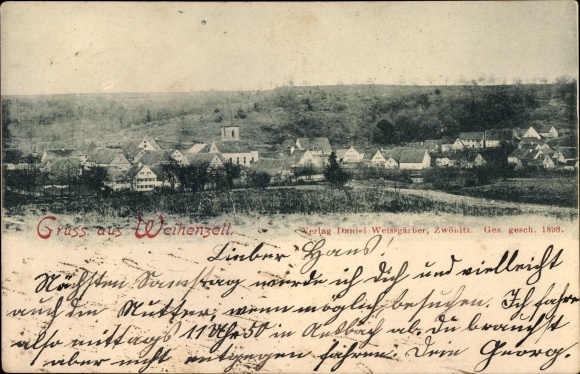 Gruss aus Weihenzell.
Verlag Daniel Weissgärber, Zwönitz. Ges. gesch. 1898.
Lieber Hans!
Nächsten Samstag werde ich Dich und vielleicht
auch Deine Mutter, wenn möglich, besuchen. Ich fahre
also mittags 11 Uhr 50 in Ansbach ab, Du brauchst
aber nicht entgegen fahren. Dein Georg.